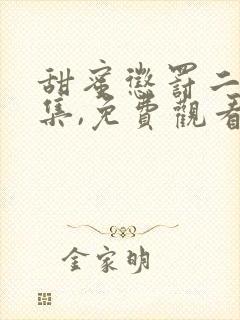 甜蜜懲罰二
集,免費觀看
金家明